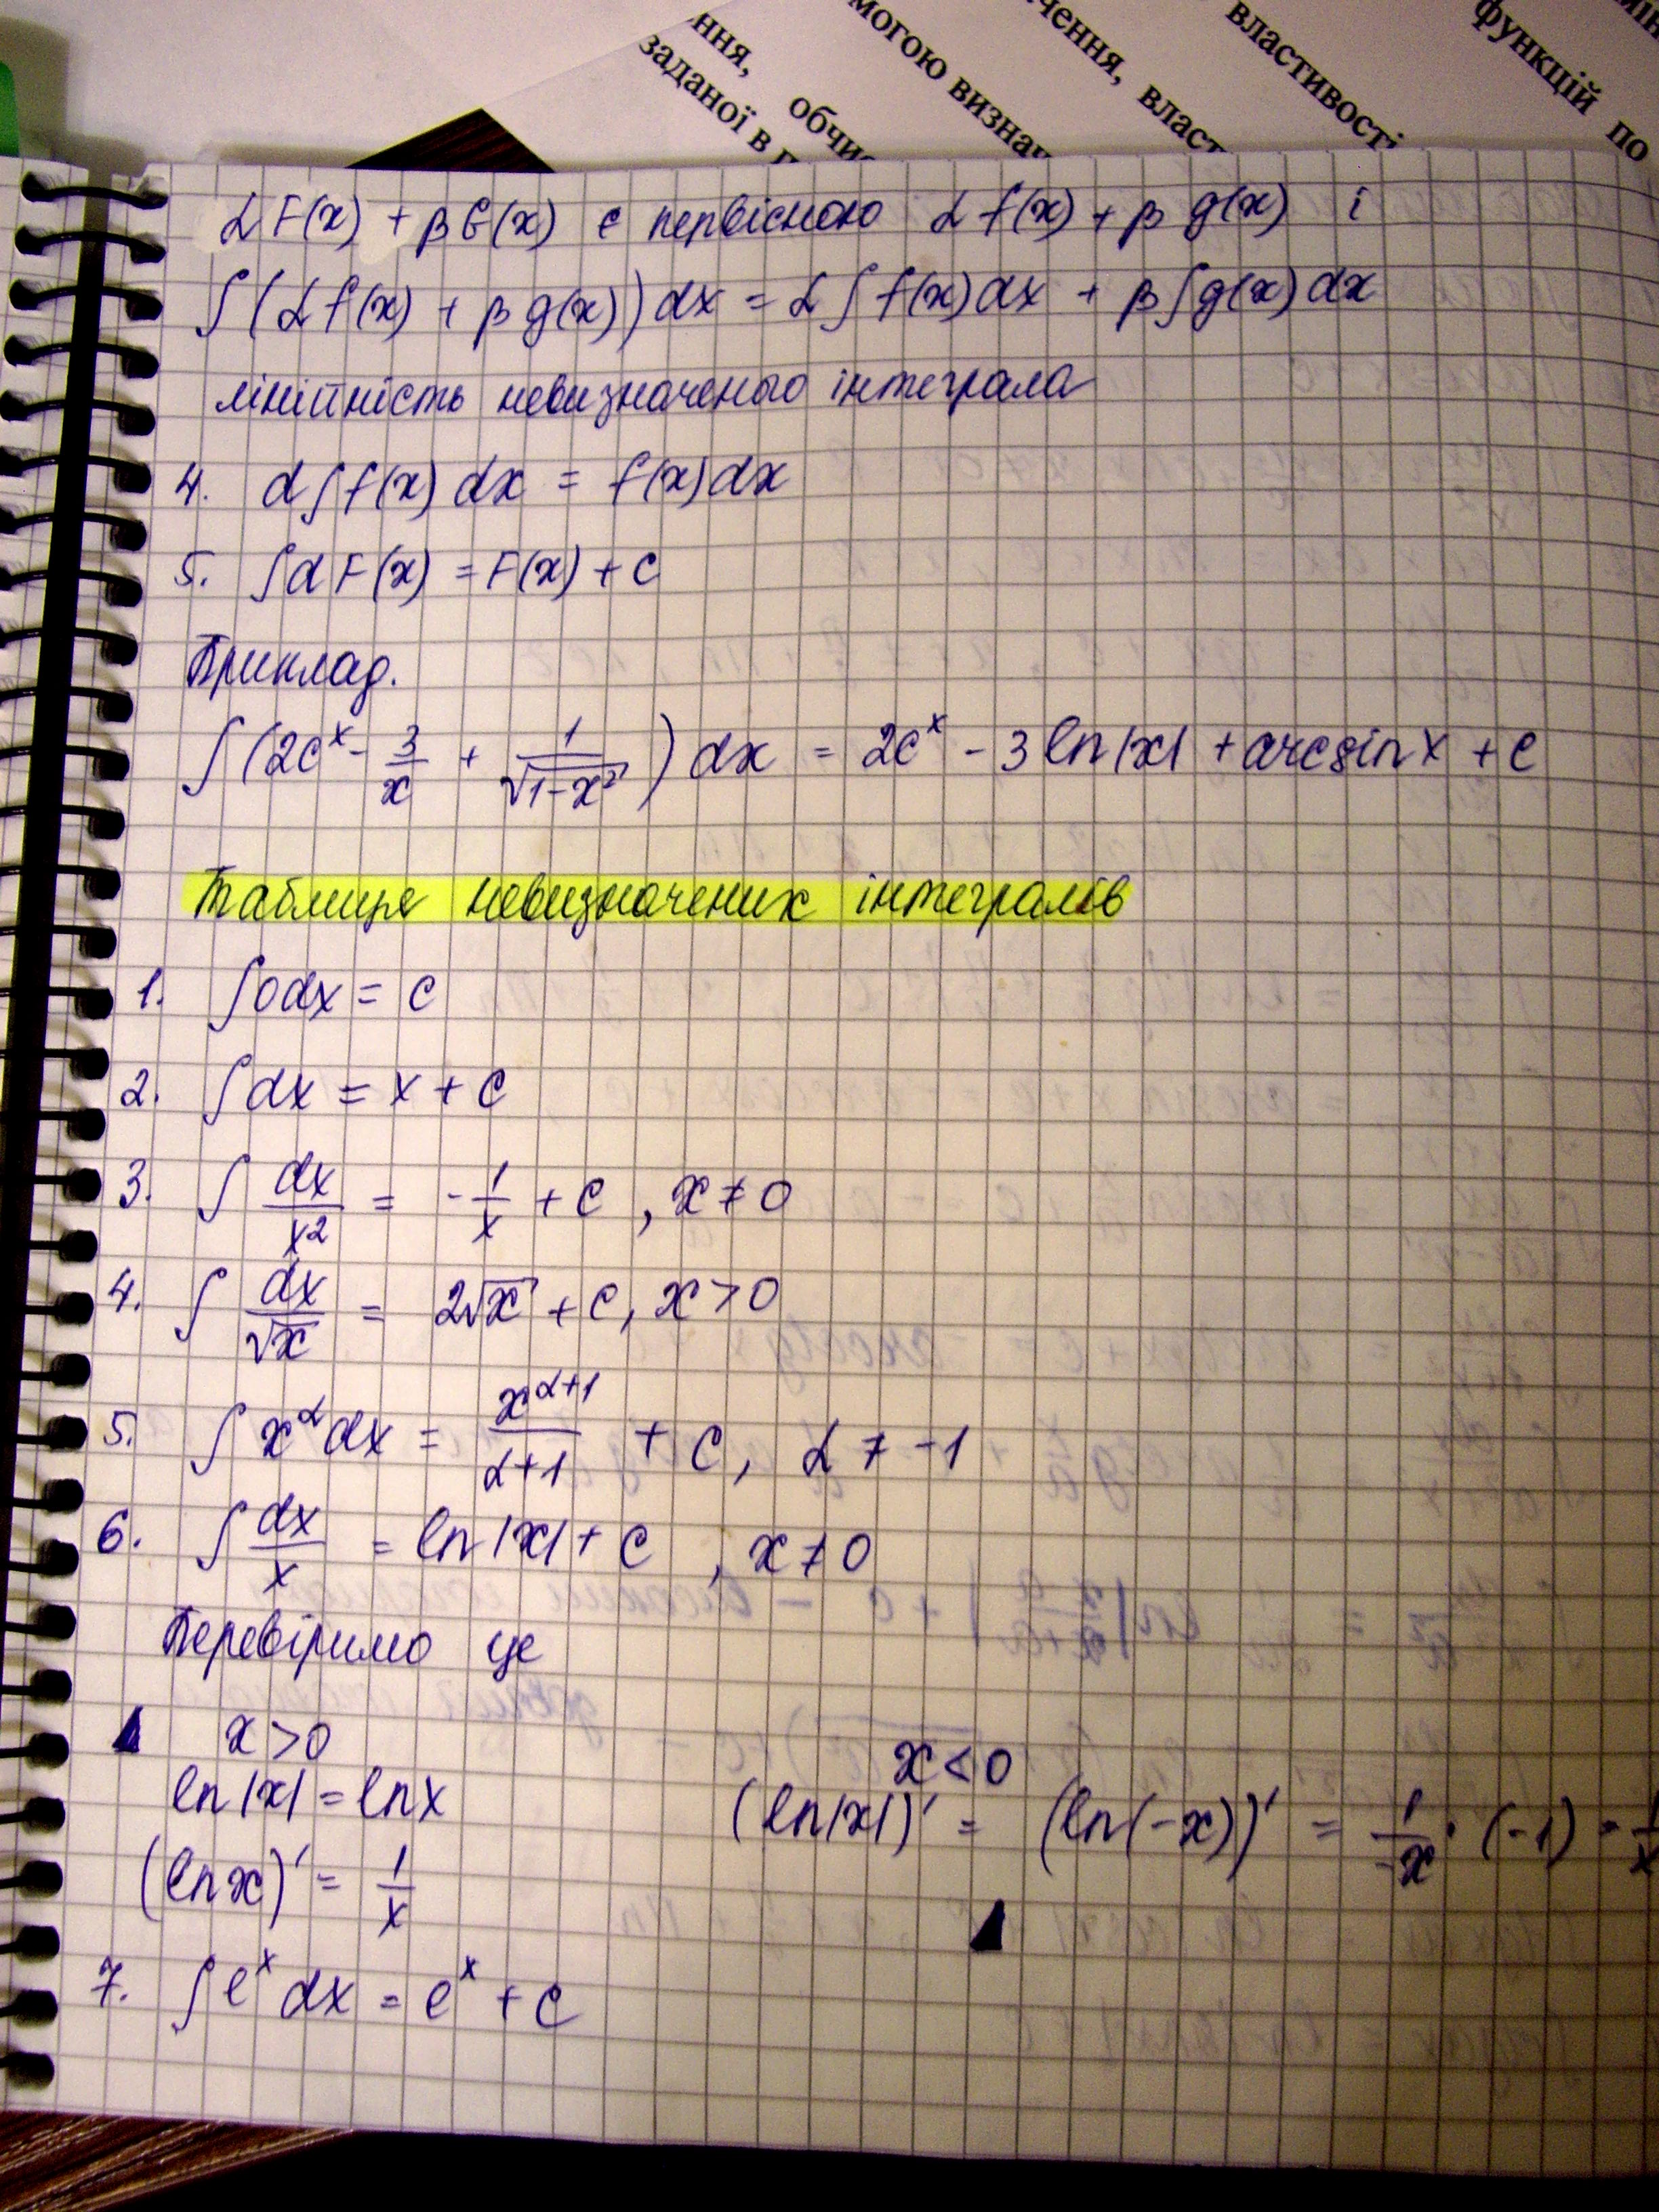 ння, обчис
заданої в п
могою визнач
чення, власт
властивості
функцій по
αF(x) + βG(x) є первісною αf(x) + βg(x) і
∫(αf(x) + βg(x))dx = α∫f(x)dx + β∫g(x)dx
лінійність невизначеного інтеграла
4. d∫f(x)dx = f(x)dx
5. ∫dF(x) = F(x) + C
Приклад.
∫(2e^x - 3/x + 1/√(1-x²))dx = 2e^x - 3ln|x| + arcsinx + C
Таблиця невизначених інтегралів
1. ∫0dx = C
2. ∫dx = x + C
3. ∫dx/x² = -1/x + C, x ≠ 0
4. ∫dx/√x = 2√x + C, x > 0
5. ∫x^α dx = x^(α+1)/(α+1) + C, α ≠ -1
6. ∫dx/x = ln|x| + C, x ≠ 0
Перевіримо це
x > 0
ln|x| = lnx
(lnx)' = 1/x
x < 0
(ln|x|)' = (ln(-x))' = 1/-x · (-1) = 1/x
7. ∫e^x dx = e^x + C